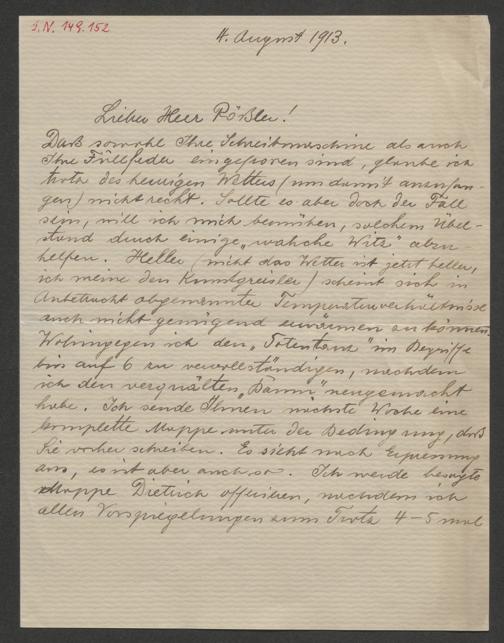 J.N. 149.152
4. August 1913.
Lieber Herr Rößler!
Daß sowohl Ihre Schreibmaschine als auch
Ihre Füllfeder eingefroren sind, glaube ich
trotz des heurigen Wetters (um damit anzufan-
gen) nicht recht. Sollte es aber doch der Fall
sein, will ich mich bemühen, solchem Übel-
stand durch einige „ Witz" ab zu
helfen. Heller (nicht das Wetter ist jetzt heller,
ich meine den Kunstgreisler) scheint sich in
Anbetracht obgenannter Temperaturverhältnisse
auch nicht genügend erwärmen zu können,
Wohingegen ich den „Totentanz" im Begriffe
bin auf 6 zu vervollständigen, nachdem
ich den verquälten „ " neugemacht
habe. Ich sende Ihnen nächste Woche eine
komplette Mappe unter der Bedingung, daß
Sie vorher schreiben. Es sieht nach Erpressung
aus, es ist aber auch so. Ich werde besagte
Mappe Dietrich offerieren, nachdem ich
allen Vorspiegelungen zum Trotz 4–5 mal